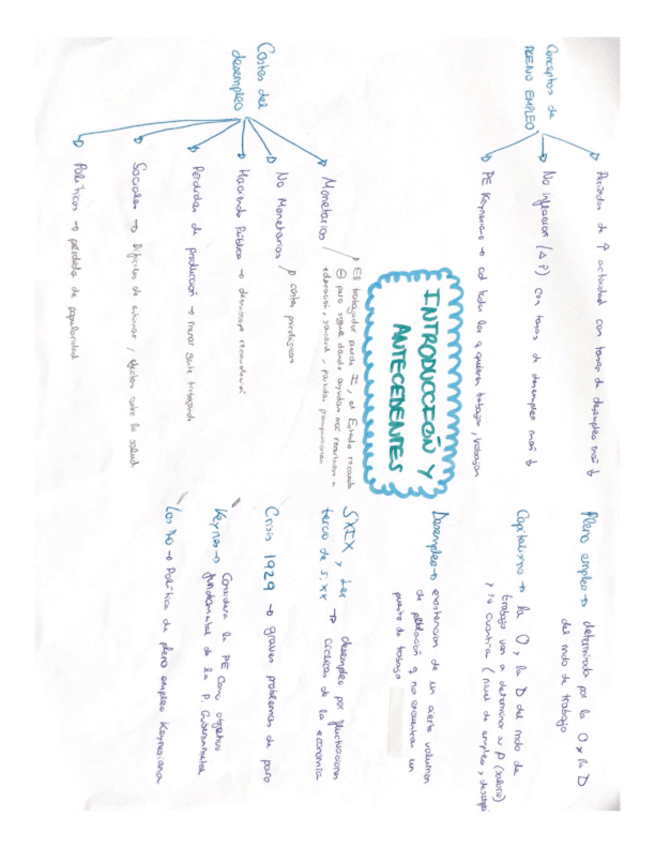 Conceptos de
PLENO EMPLEO
Periodos de ↑ actividad con tasas de desempleo muy ↓
No inflación (Δ P) con tasas de desempleo muy ↓
PE Keynesiano → cd todos los q quieran trabajar, trabajan
INTRODUCCIÓN Y
ANTECEDENTES
Costes del
desempleo
Monetarios
El trabajador pierde I, el Estado recauda
⊖ pero sigue dando ayudas
educación, sanidad,
No Monetarios
costes psicológicos
Hacienda Pública → disminuye recaudación
Pérdidas de producción → menor gente trabajando
Sociales → Dificultad de , efectos sobre la salud
Políticos → pérdida de popularidad
Pleno empleo → determinado por la O y la D
del mdo de trabajo
Capitalismo → la O y la D del mdo de
trabajo van a determinar su P (salario)
y su cuantía (nivel de empleo y desempl
Desempleo → existencia de un cierto volumen
de población q no encuentra un
puesto de trabajo
S.XIX y 1er
tercio de S.XX → desempleo por fluctuaciones
cíclicas de la economía
Crisis 1929 → graves problemas de paro
Keynes → Considera la PE como objetivo
fundamental de la P. Gubernamental
Los → Política de pleno empleo Keynesiana